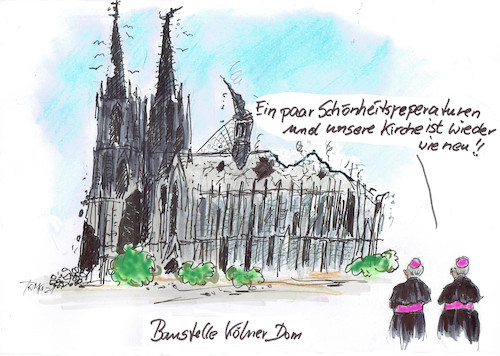 Ein paar Schönheitsreperaturen
und unsere Kirche ist wieder
wie neu!!
Baustelle Kölner Dom